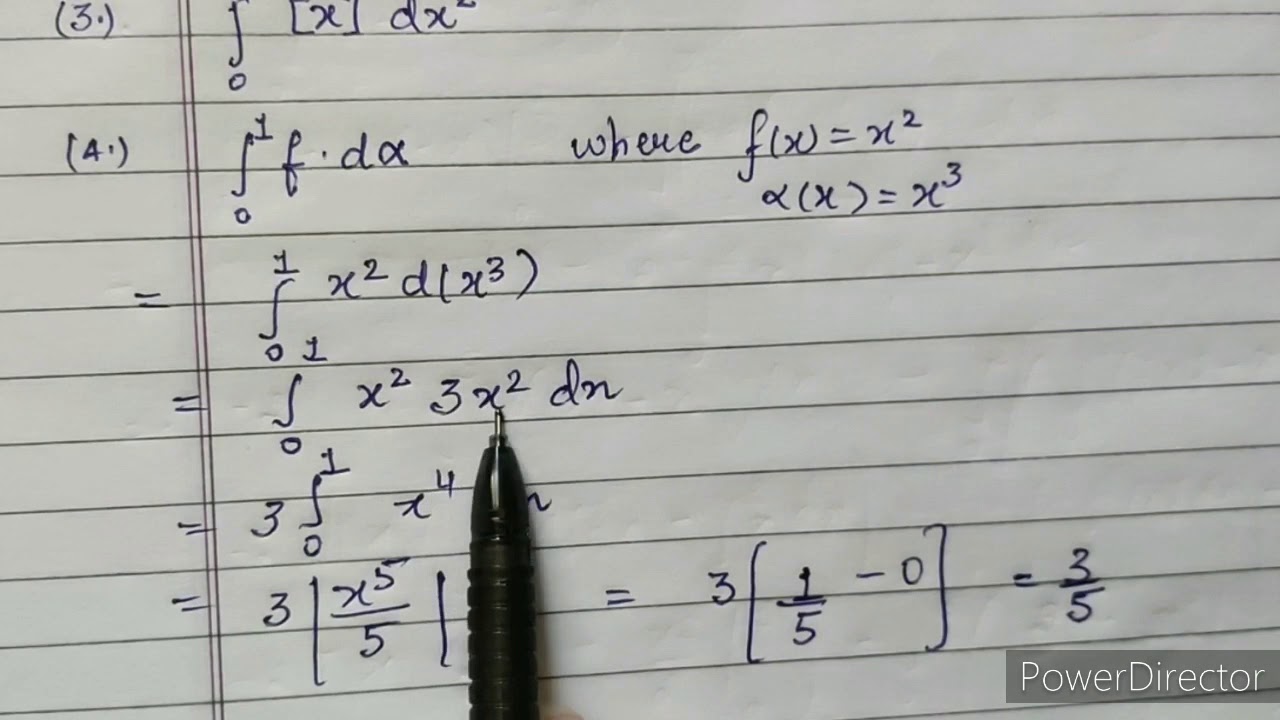 (3.) ∫₀ [x] dx²
(4.) ∫₀¹ f · dα where f(x) = x²
α(x) = x³
= ∫₀¹ x² d(x³)
= ∫₀¹ x² 3x² dx
= 3 ∫₀¹ x⁴
= 3 [x⁵/5] = 3 [1/5 - 0] = 3/5
PowerDirector